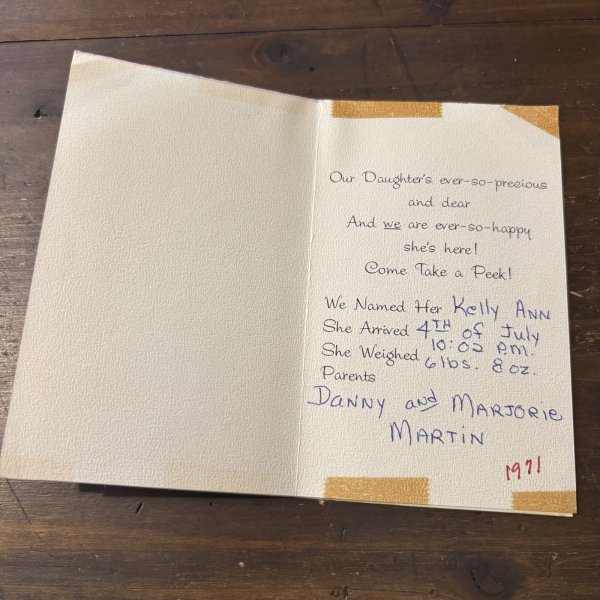 Our Daughter's ever-so-precious
and dear
And we are ever-so-happy
she's here!
Come Take a Peek!
We Named Her Kelly Ann
She Arrived 4TH of July
10:02 P.M.
She Weighed 6 lbs. 8 oz.
Parents
Danny and Marjorie
Martin
1971